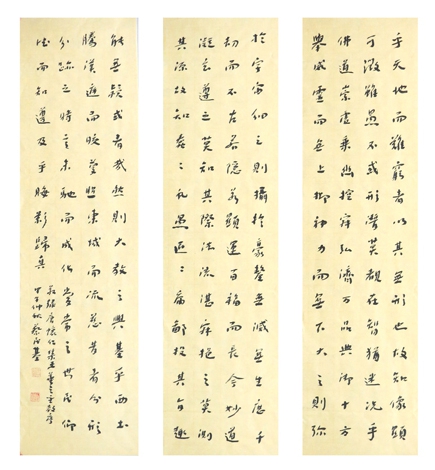 乎天地而難窮者以其無形也故知像顯
可徵雖愚不惑形潛莫覩在智猶迷況乎
佛道崇虛乘幽控寂弘濟万品典御十方
舉威靈而無上抑神力而無下大之則彌
於宇宙細之則攝於豪釐無滅無生歷千
劫而不古若隱若顯運百福而長今妙道
凝玄遵之莫知其際法流湛寂挹之莫測
其源故知蠢蠢凡愚區區庸鄙投其旨趣
能無疑或者哉然則大教之興基乎西土
騰漢庭而皎夢照東域而流慈昔者分形
分跡之時言未馳而成化當常之世民仰
德而知遵及乎晦影歸真
唐懷仁集王羲之聖教序
仲秋